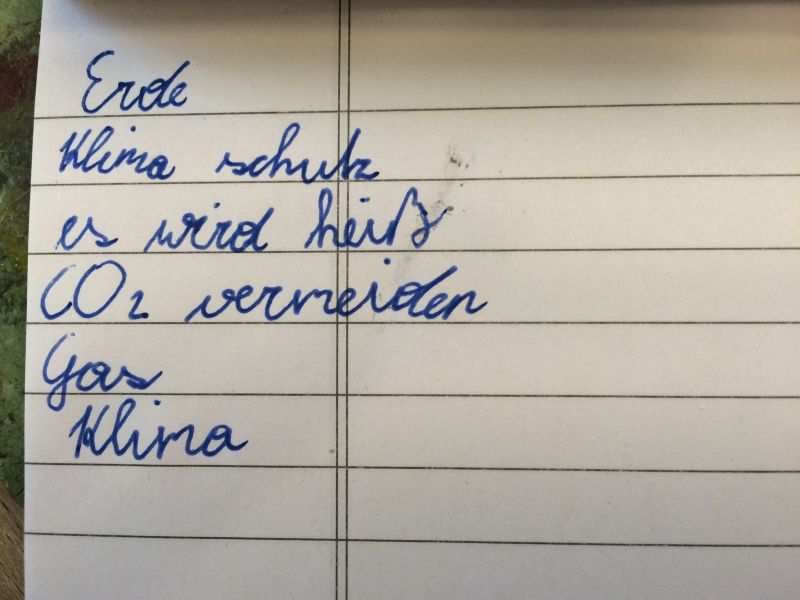 Erde
Klima schutz
es wird heiß
CO₂ vermeiden
Gas
Klima